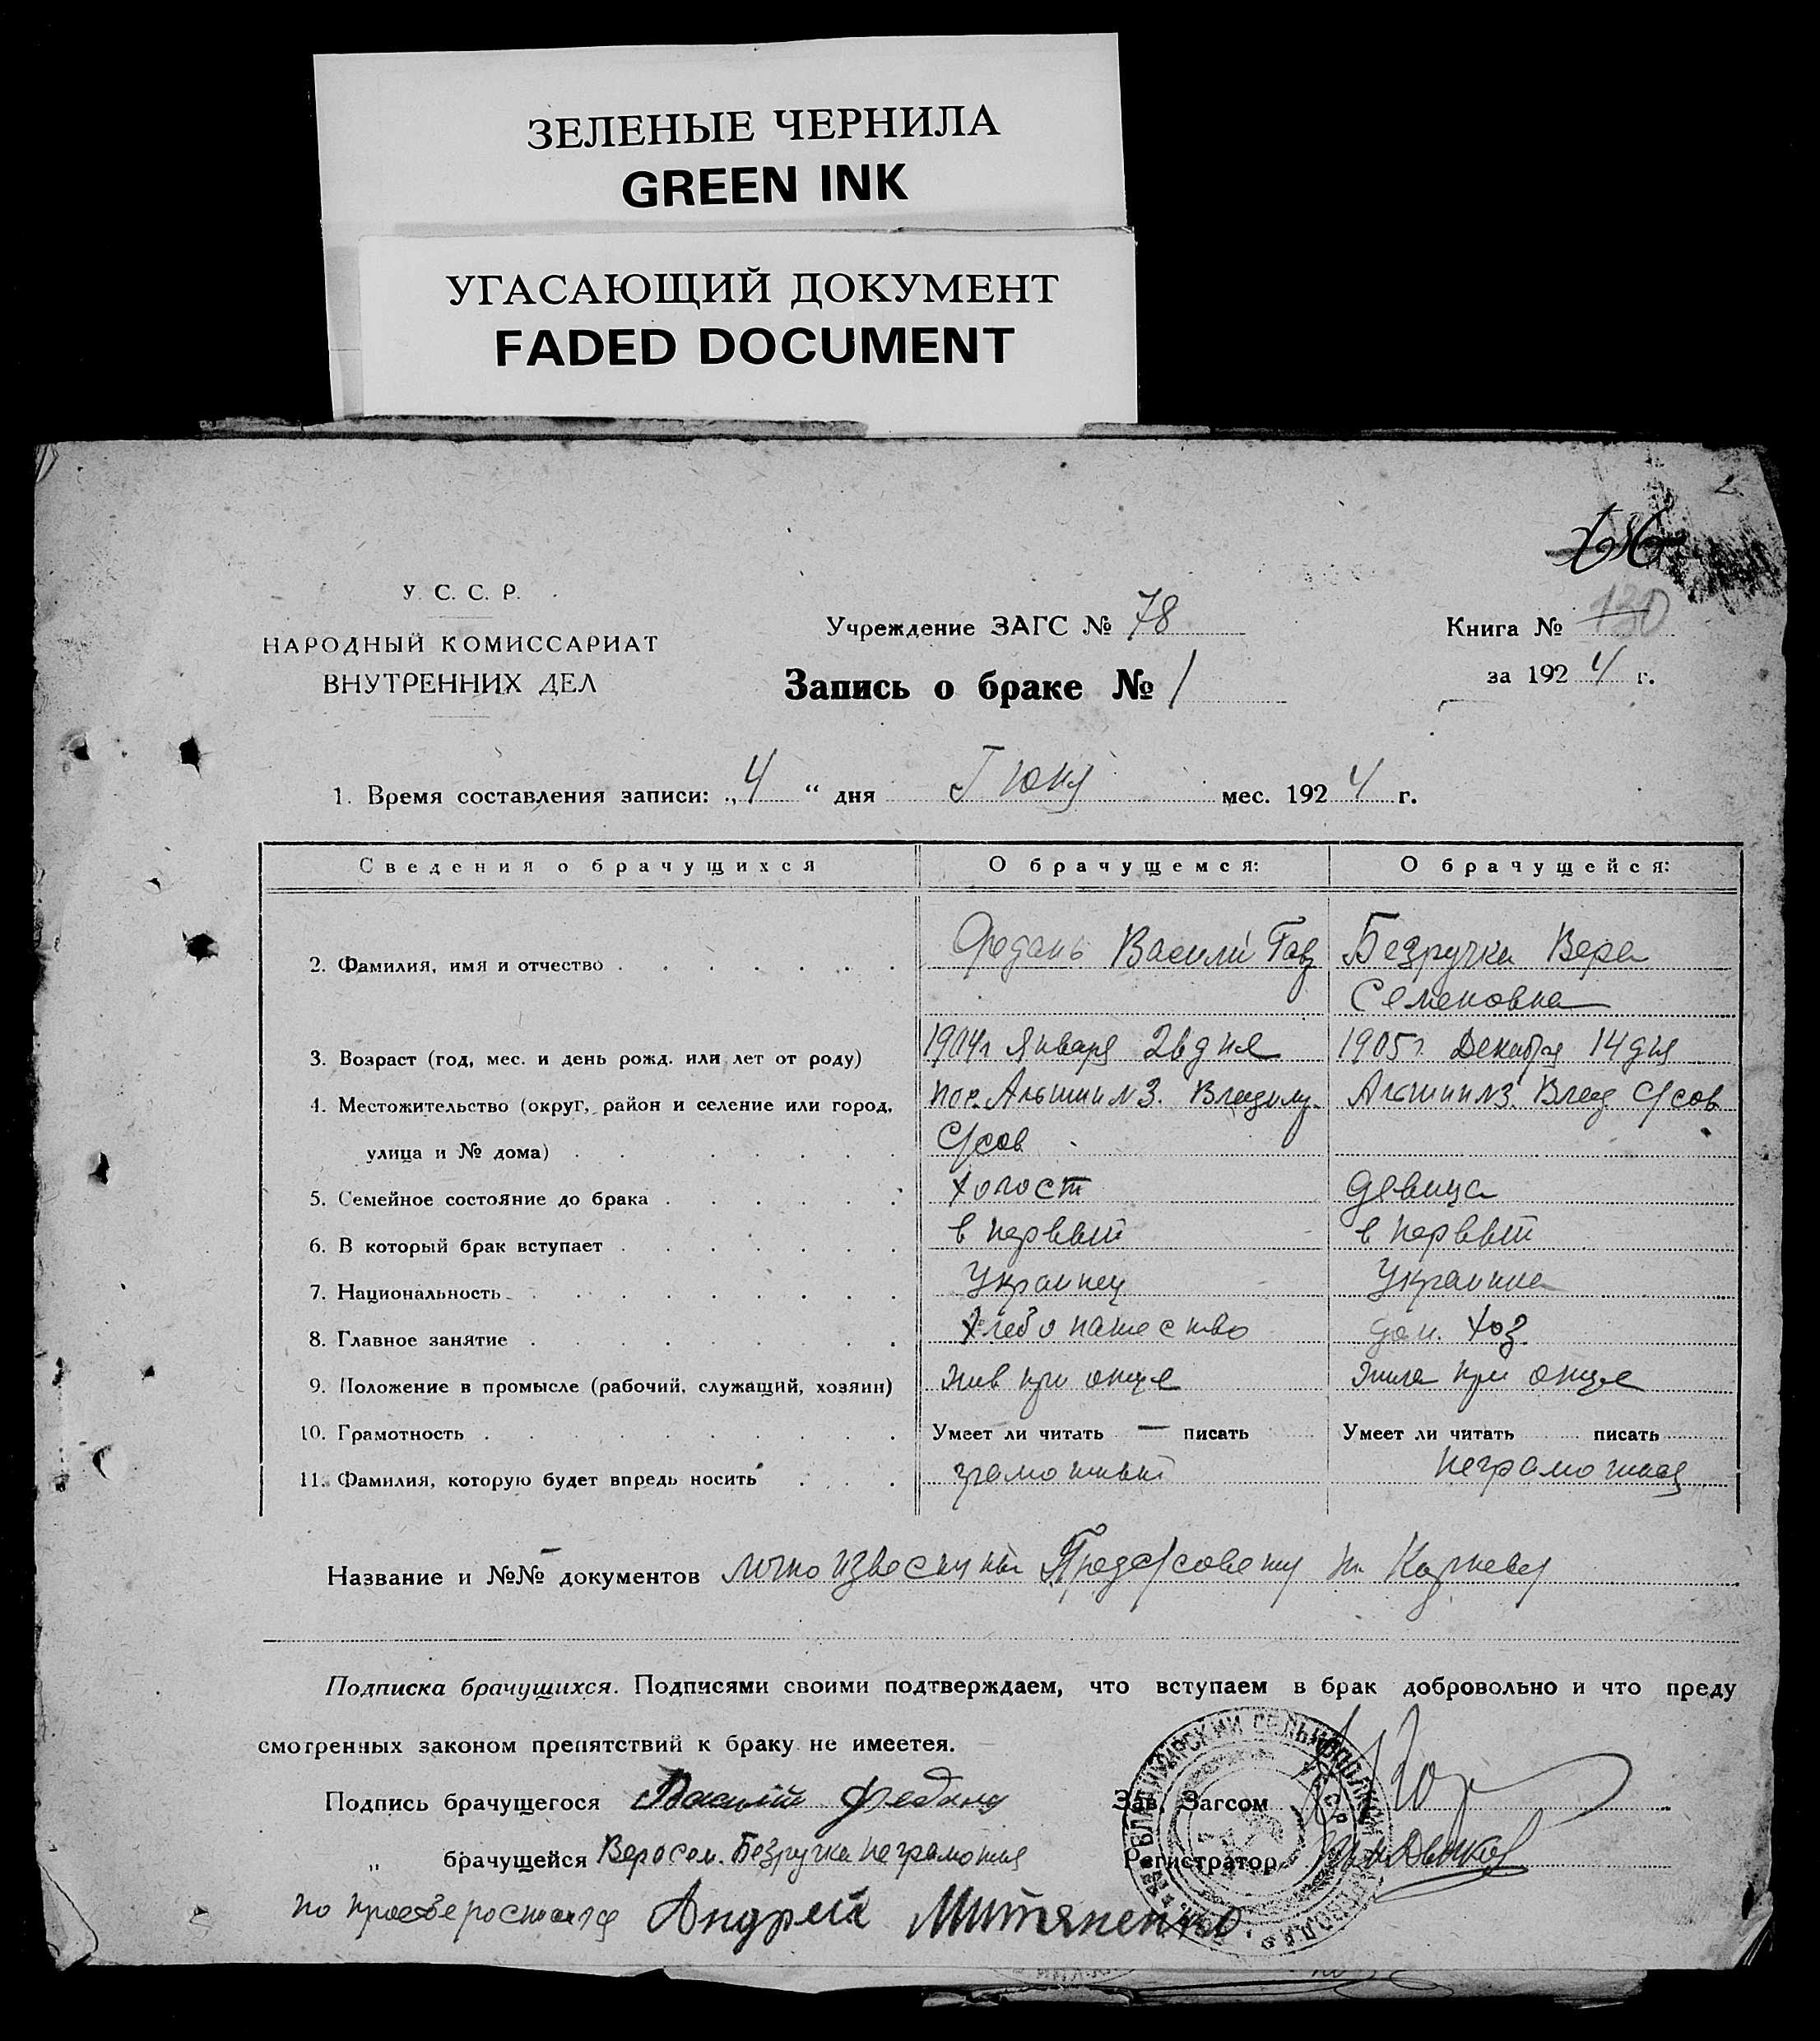 ЗЕЛЕНЫЕ ЧЕРНИЛА
GREEN INK
УГАСАЮЩИЙ ДОКУМЕНТ
FADED DOCUMENT
У. С. С. Р.
НАРОДНЫЙ КОМИССАРИАТ
ВНУТРЕННИХ ДЕЛ
Учреждение ЗАГС № 78
Запись о браке № 1
Книга № 130
за 1924 г.
1. Время составления записи: „4“ дня Июня мес. 1924 г.
Сведения о брачущихся О брачущемся: О брачущейся:
2. Фамилия, имя и отчество Федань Василий Гав Безручка Вера
Семеновна
3. Возраст (год, мес. и день рожд. или лет от роду) 1904г Января 28 дня 1905г. Декабря 14 дня
4. Местожительство (округ, район и селение или город, пос. Альтин №3. Владим. Альтин №3. Влад С/сов
улица и № дома) С/сов
5. Семейное состояние до брака холост девица
6. В который брак вступает в первый в первый
7. Национальность Украинец Украинка
8. Главное занятие Хлебопашество дом. хоз.
9. Положение в промысле (рабочий, служащий, хозяин) жив при отце жила при отце
10. Грамотность Умеет ли читать — писать Умеет ли читать писать
11. Фамилия, которую будет впредь носить грамотный неграмотная
Название и №№ документов лично известны Предс/совету
Подписка брачущихся. Подписями своими подтверждаем, что вступаем в брак добровольно и что преду
смотренных законом препятствий к браку не имеется.
Подпись брачущегося Василий Федань Зав. Загсом
„ брачущейся Вера Сем. Безручка неграмотная Регистратор
по просьбе росписался Андрей Митяненко